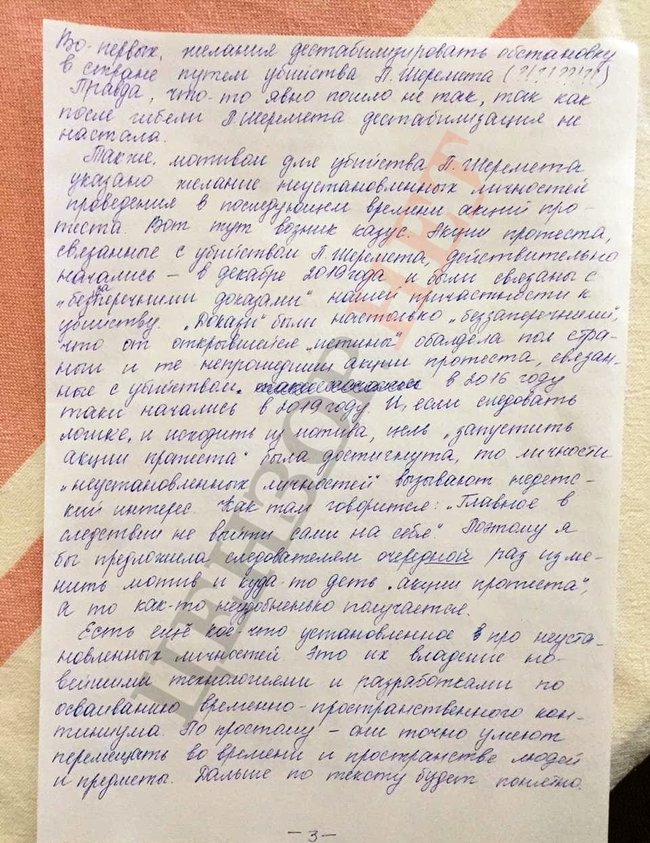 Во-первых, желания дестабилизировать обстановку
в стране путем убийства П. Шеремета
Правда, что-то явно пошло не так, так как
после гибели П. Шеремета дестабилизация не
настала.
Также, мотивом для убийства П. Шеремета
указано желание неустановленных личностей
проведения в последующем времени акций про-
теста Вот тут возник казус. Акции протеста,
связанные с убийством П. Шеремета, действительно
начались – в декабре 2019 года и были связаны с
„беззаперечними доказами“ нашей причастности к
убийству. „Докази“ были настолько „беззаперечними“,
что от открывшейся „истины“ обалдела пол стра-
ны и те непрошедшие акции протеста, связан-
ные с убийством, в 2016 году
таки начались в 2019 году. И, если следовать
логике, и исходить из мотива, цель „запустить
акции протеста“ была достигнута, то личности
„неустановленных личностей“ вызывают недетс-
кий интерес. Как там говорится: „Главное в
следствии не выйти сами на себя“. Поэтому я
бы предложила следователем очередной раз изме-
нить мотив и куда-то деть „акции протеста“,
а то как-то неудобненько получается.
Есть ещё кое-что установленное про неуста-
новленных личностей Это их владение но-
вейшими технологиями и разработками по
осваиванию временно-пространственного кон-
тиниума. По простому – они точно умеют
перемещать во времени и пространстве людей
и предметы. Дальше по тексту будет понятно.
– 3 –
ЦЕНЗОР.НЕТ